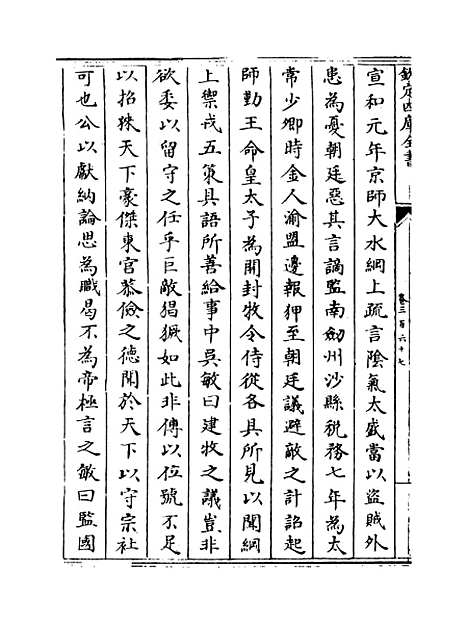 欽定四庫全書
卷三百六十七
宣和元年京師大水綱上疏言陰氣太盛當以盜賊外
患為憂朝廷惡其言謫監南劒州沙縣稅務七年為太
常少卿時金人渝盟邊報狎至朝廷議避敵之計詔起
師勤王命皇太子為開封牧令侍從各具所見以聞綱
上禦戎五策具語所善給事中吳敏曰建牧之議豈非
欲委以留守之任乎巨敵猖獗如此非傳以位號不足
以招徠天下豪傑東宮恭儉之德聞於天下以守宗社
可也公以獻納論思為職曷不為帝極言之敏曰監國